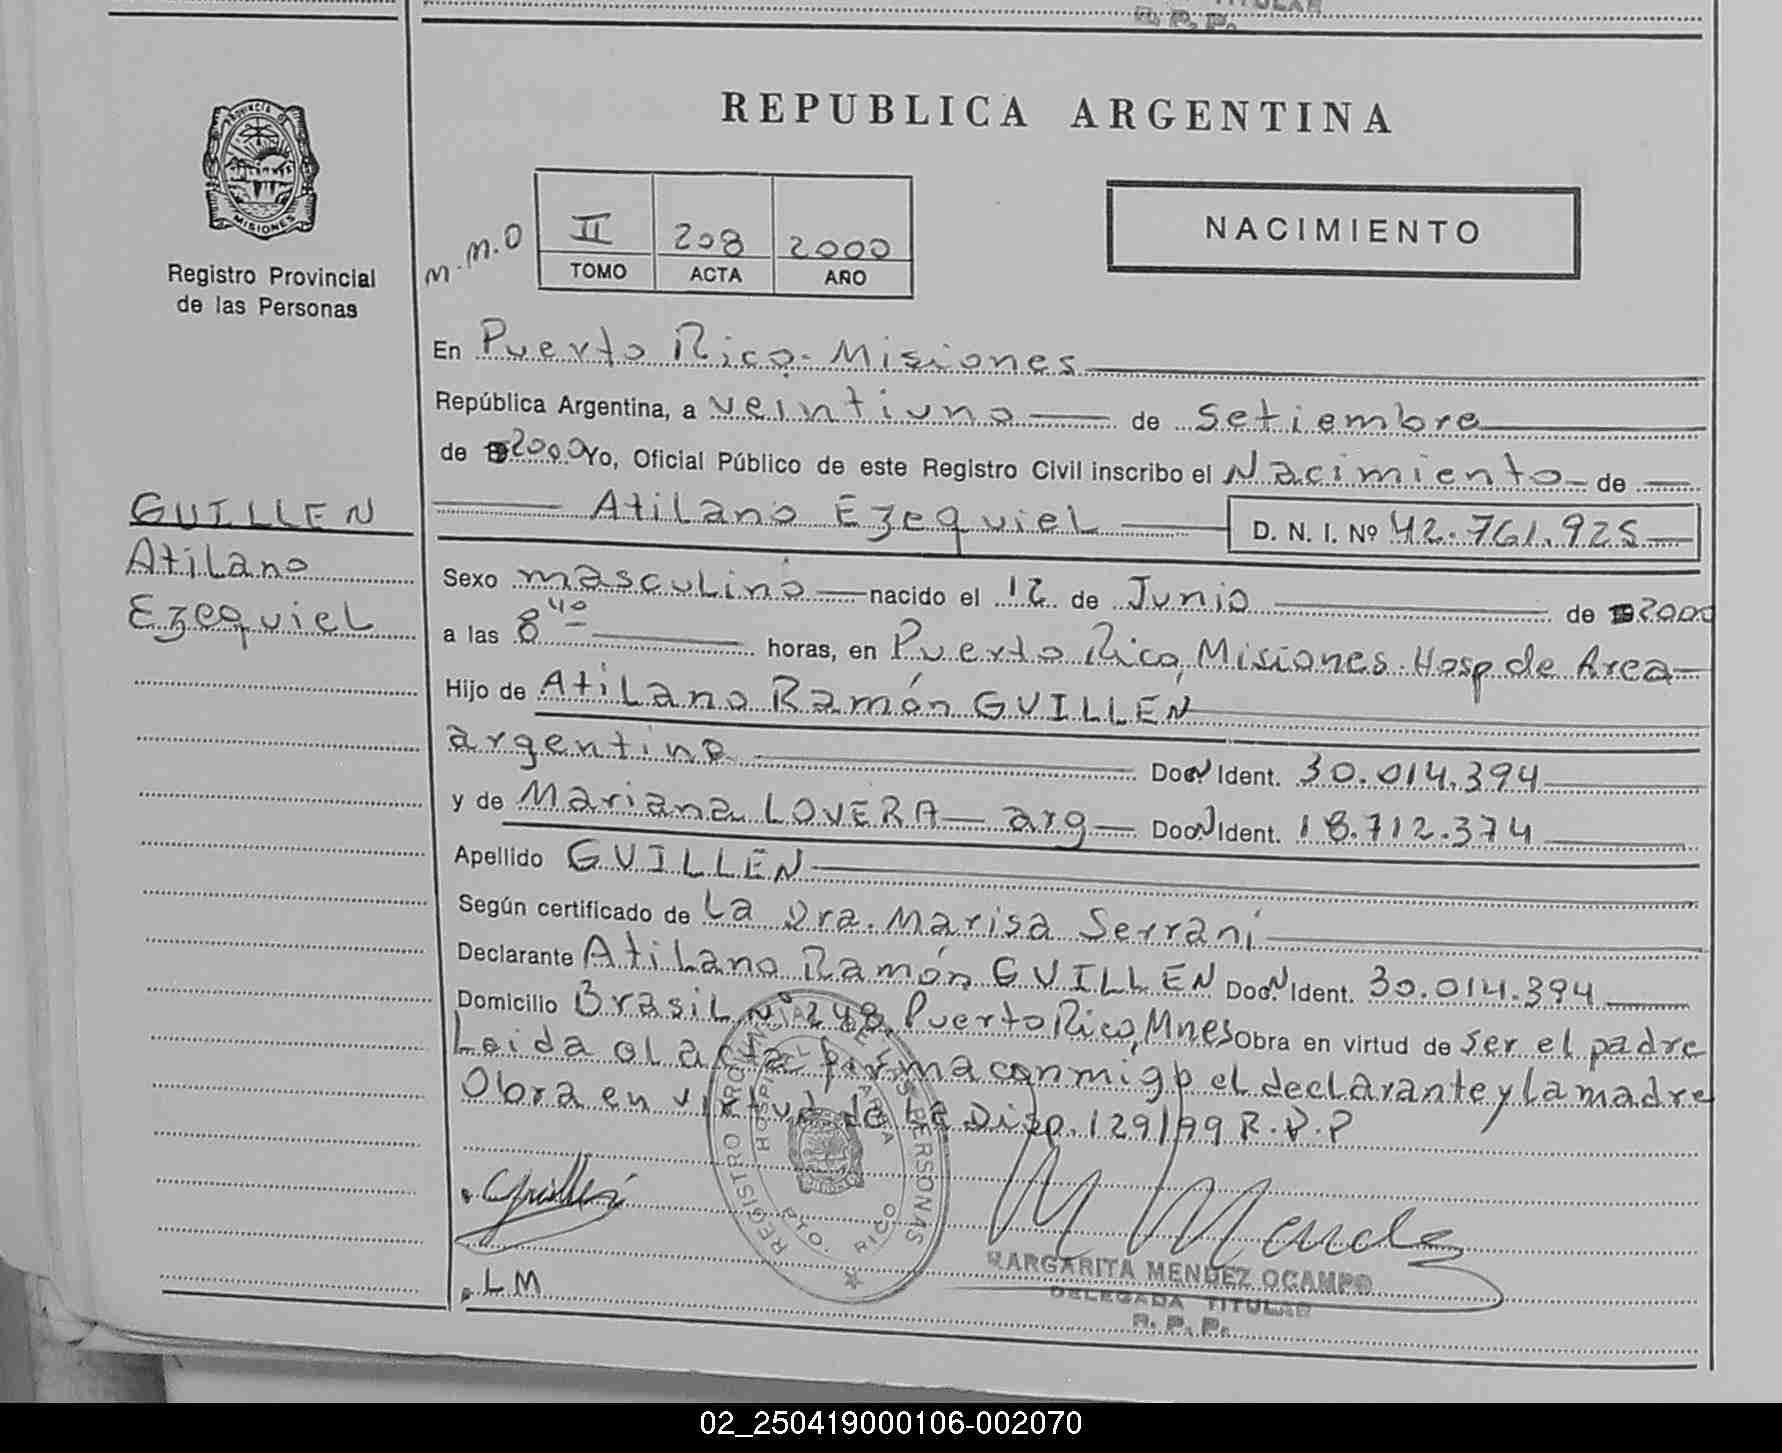 TITULAR
R. P. P.
PROVINCIA DE
MISIONES
Registro Provincial
de las Personas
REPUBLICA ARGENTINA
m.m.o
II 208 2000
TOMO ACTA AÑO
NACIMIENTO
En Puerto Rico - Misiones
República Argentina, a veintiuno de Setiembre
de 2000 Yo, Oficial Público de este Registro Civil inscribo el Nacimiento de
Atilano Ezequiel D. N. I. Nº 42.761.925
GUILLEN
Atilano
Ezequiel
Sexo masculino nacido el 12 de Junio de 2000
a las 8 40 horas, en Puerto Rico, Misiones. Hosp de Area
Hijo de Atilano Ramón GUILLEN
argentino Doc. N Ident. 30.014.394
y de Mariana LOVERA arg Doc. N Ident. 18.712.374
Apellido GUILLEN
Según certificado de La Dra. Marisa Serrani
Declarante Atilano Ramón GUILLEN Doc. N Ident. 30.014.394
Domicilio Brasil Nº 248 Puerto Rico, Mnes Obra en virtud de ser el padre
Leida el acta firma conmigo el declarante y la madre
Obra en virtud de la Disp. 129/99 R.P.P
REGISTRO PROVINCIAL DE LAS PERSONAS
HOSPITAL AREA
PTO. RICO
Guillen
M Mendez
MARGARITA MENDEZ OCAMPO
DELEGADA TITULAR
R. P. P.
LM
02_250419000106-002070